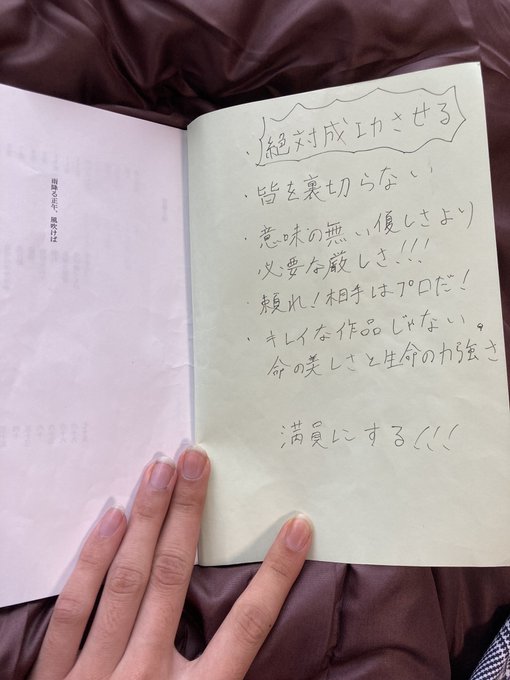 雨降る正午、風吹けば
・絶対成功させる
・皆を裏切らない
・意味の無い優しさより
必要な厳しさ!!!
・頼れ!相手はプロだ!
・キレイな作品じゃない。
命の美しさと生命の力強さ
満員にする!!!